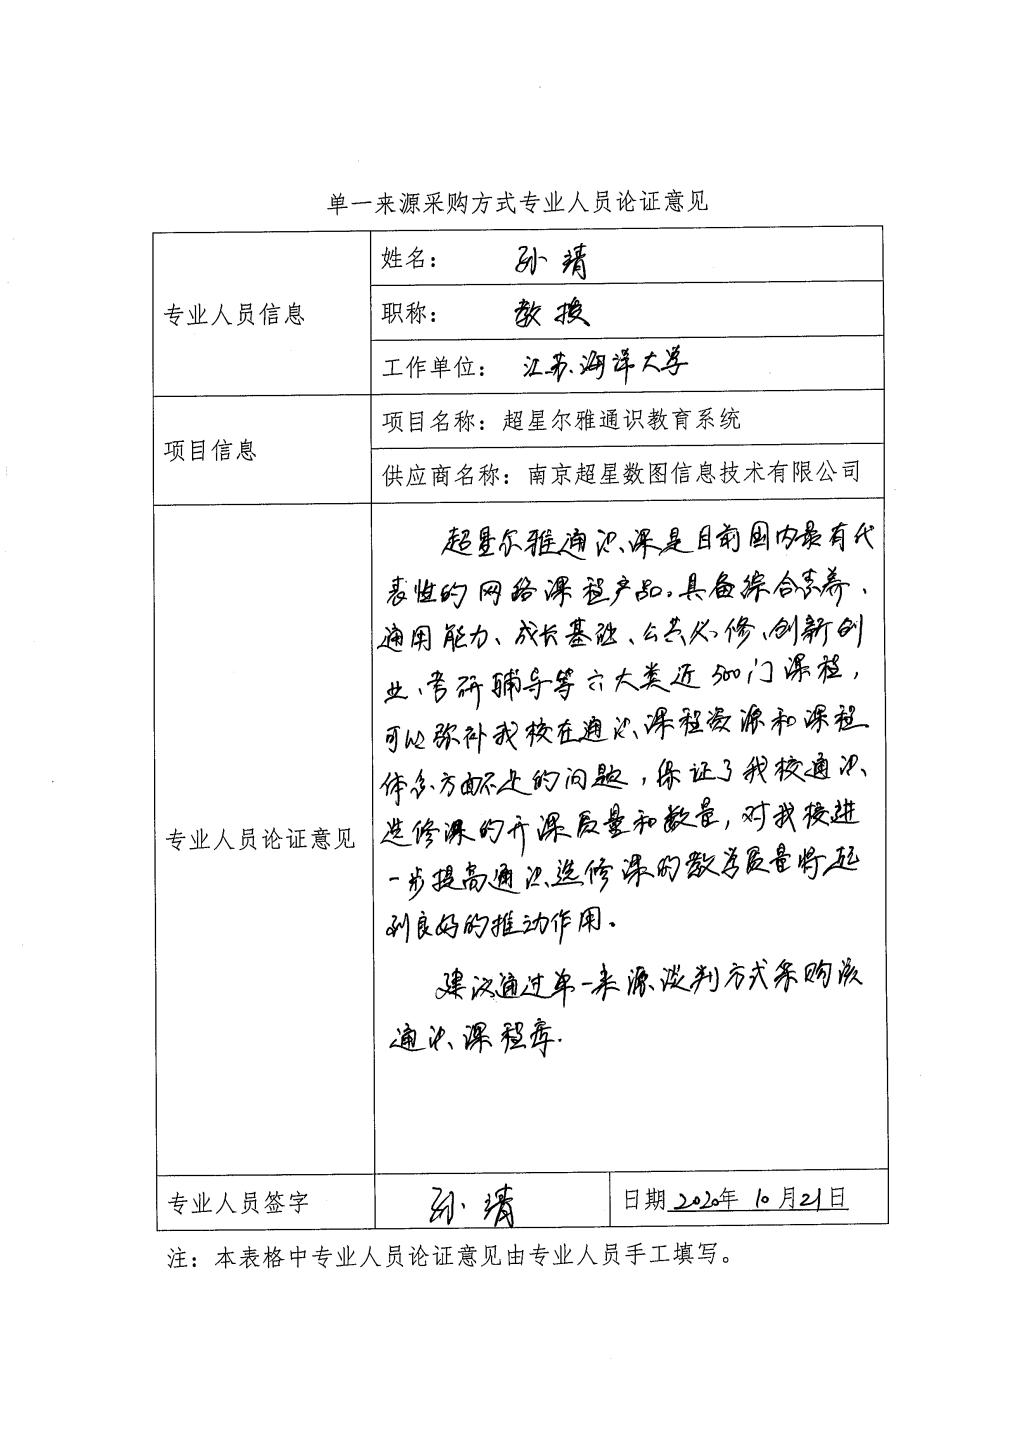 单一来源采购方式专业人员论证意见
专业人员信息
姓名： 孙靖
职称： 教授
工作单位： 江苏海洋大学
项目信息
项目名称：超星尔雅通识教育系统
供应商名称：南京超星数图信息技术有限公司
专业人员论证意见
超星尔雅通识课是目前国内最有代
表性的网络课程产品。具备综合素养、
通用能力、成长基础、公共必修、创新创
业、考研辅导等六大类近500门课程，
可以弥补我校在通识课程资源和课程
体系方面不足的问题，保证了我校通识
选修课的开课质量和数量，对我校进
一步提高通识选修课的教学质量将起
到良好的推动作用。
建议通过单一来源谈判方式采购该
通识课程库.
专业人员签字
孙靖
日期 2020年 10月21日
注：本表格中专业人员论证意见由专业人员手工填写。